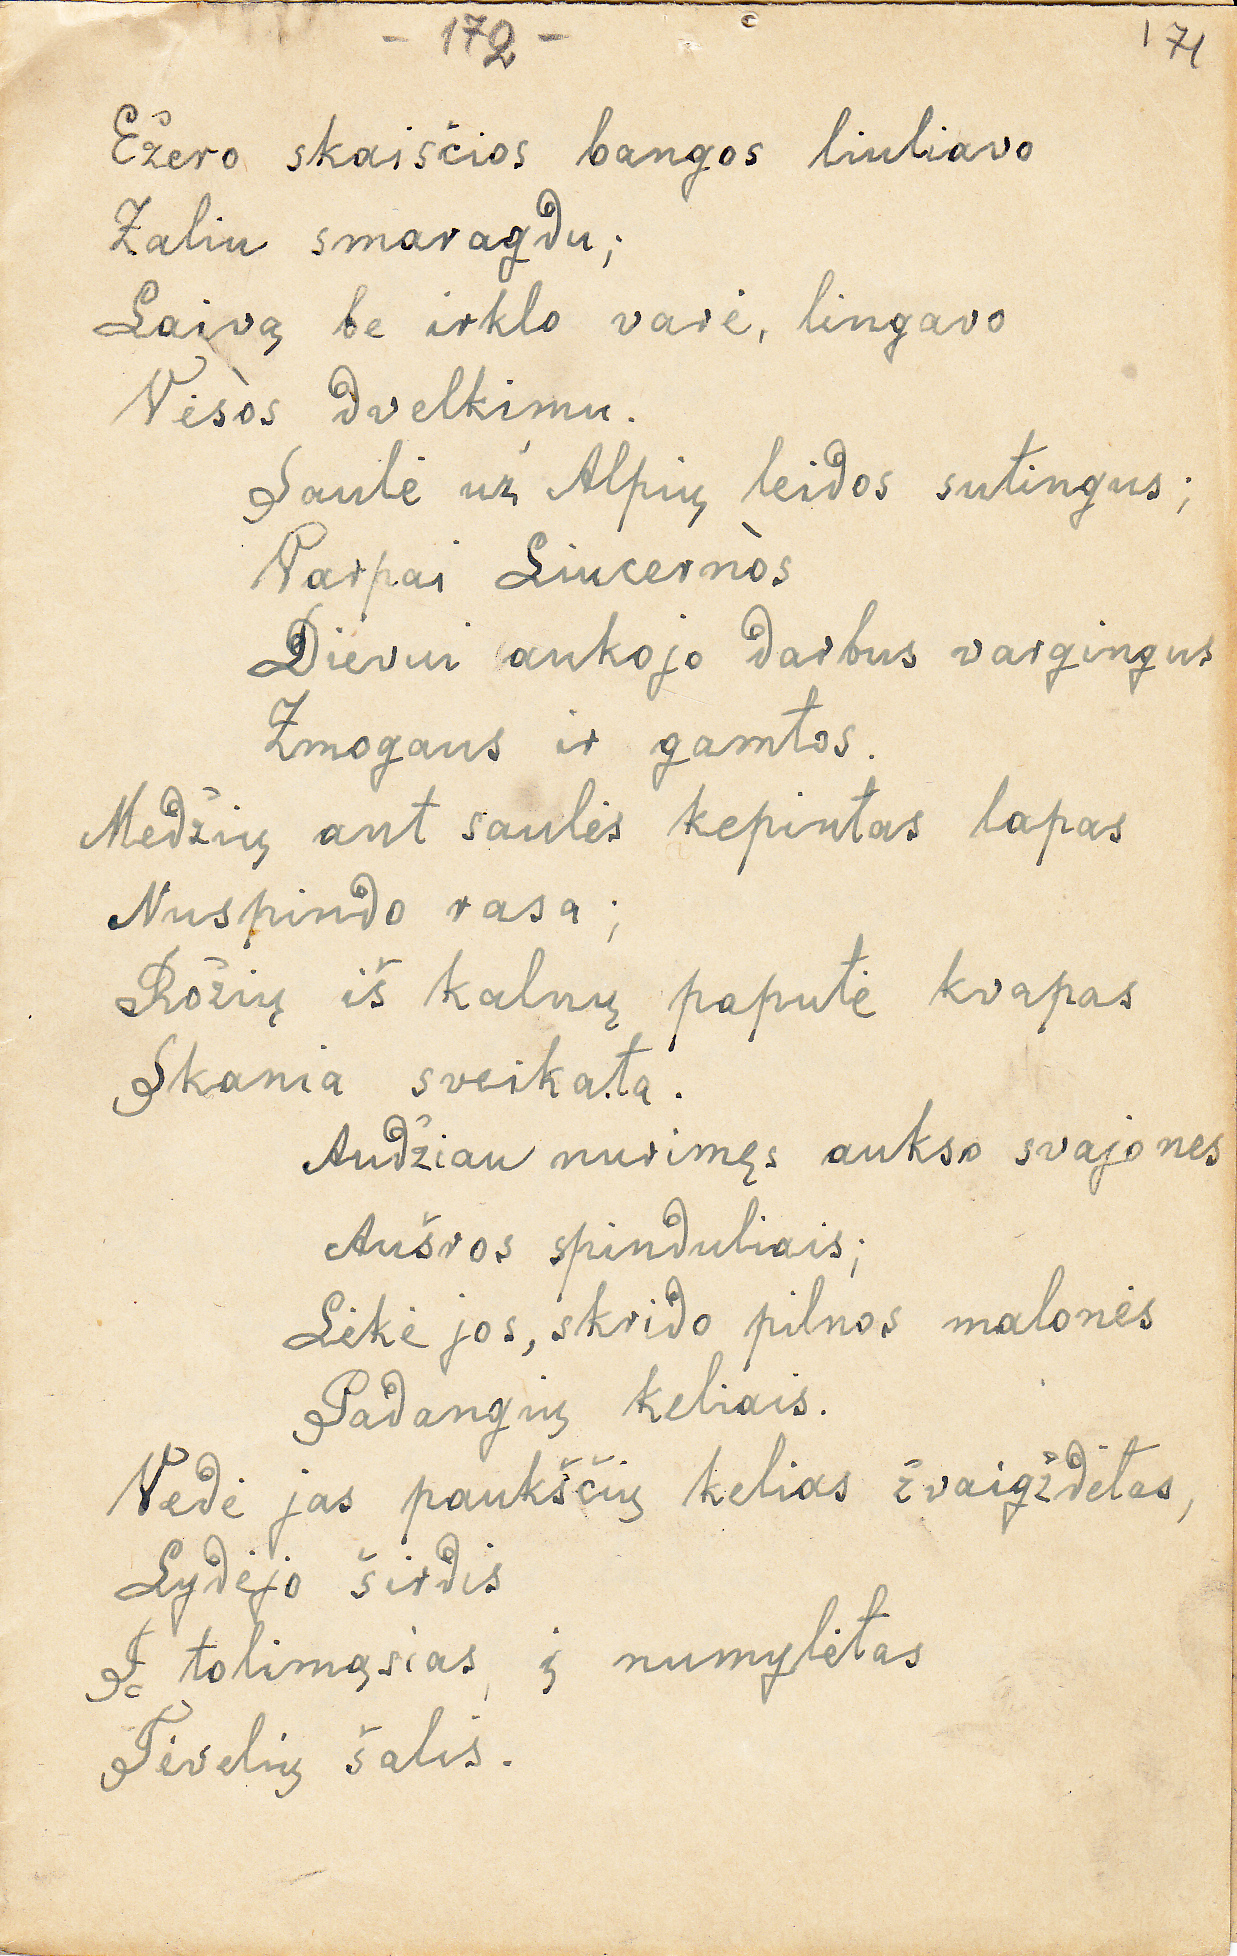 - 172 -
171
Ežero skaisčios bangos liuliavo
Žaliu smaragdu;
Laivą be irklo varė, lingavo
Vėsòs dvelkimu.
Saulė už Alpių leidos sutingus;
Varpai Liucernòs
Dievui aukojo darbus vargingus
Žmogaus ir gamtos.
Medžių ant saulės kepintas lapas
Nuspindo rasa;
Rožių iš kalnų paputė kvapas
Skania sveikata.
Audžiau nurimęs aukso svajones
Aušros spinduliais;
Lėkė jos, skrido pilnos malonės
Padangių keliais.
Vedė jas paukščių kelias žvaigždėtas,
Lydėjo širdis
Į tolimąsias, į numylėtas
Tėvelių šalis.